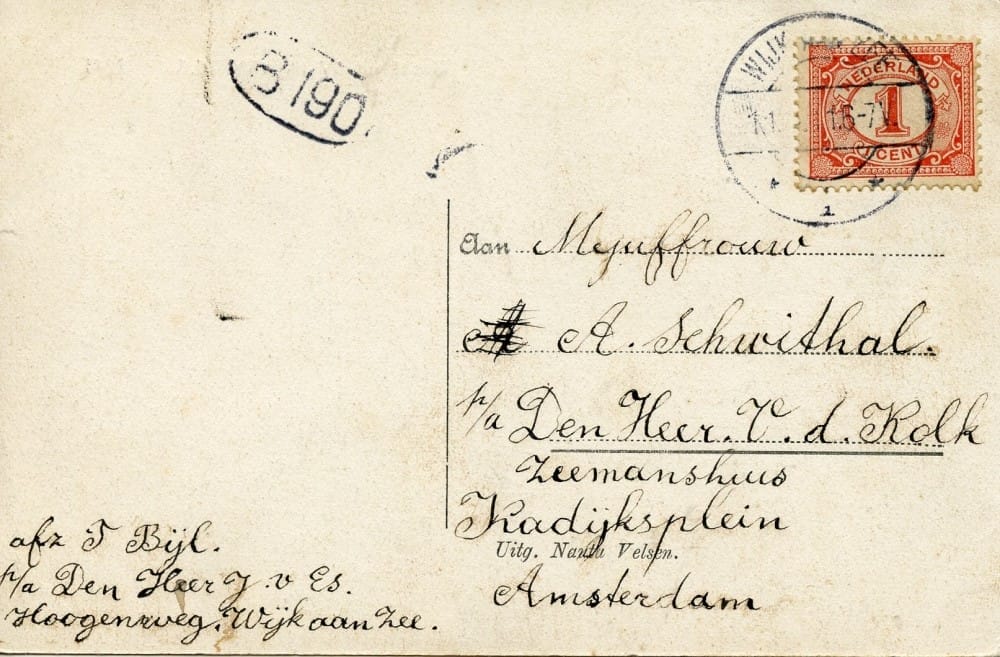 B 190
WIJK
6-7
1
NEDERLAND
1
CENT
Aan Mejuffrouw
A. Schwithal.
p/a Den Heer. V. d. Kolk
Zeemanshuis
Kadijksplein
Uitg. Nauta Velsen.
Amsterdam
afz T Bijl.
p/a Den Heer J. v Es.
Hoogenweg. Wijk aan Zee.